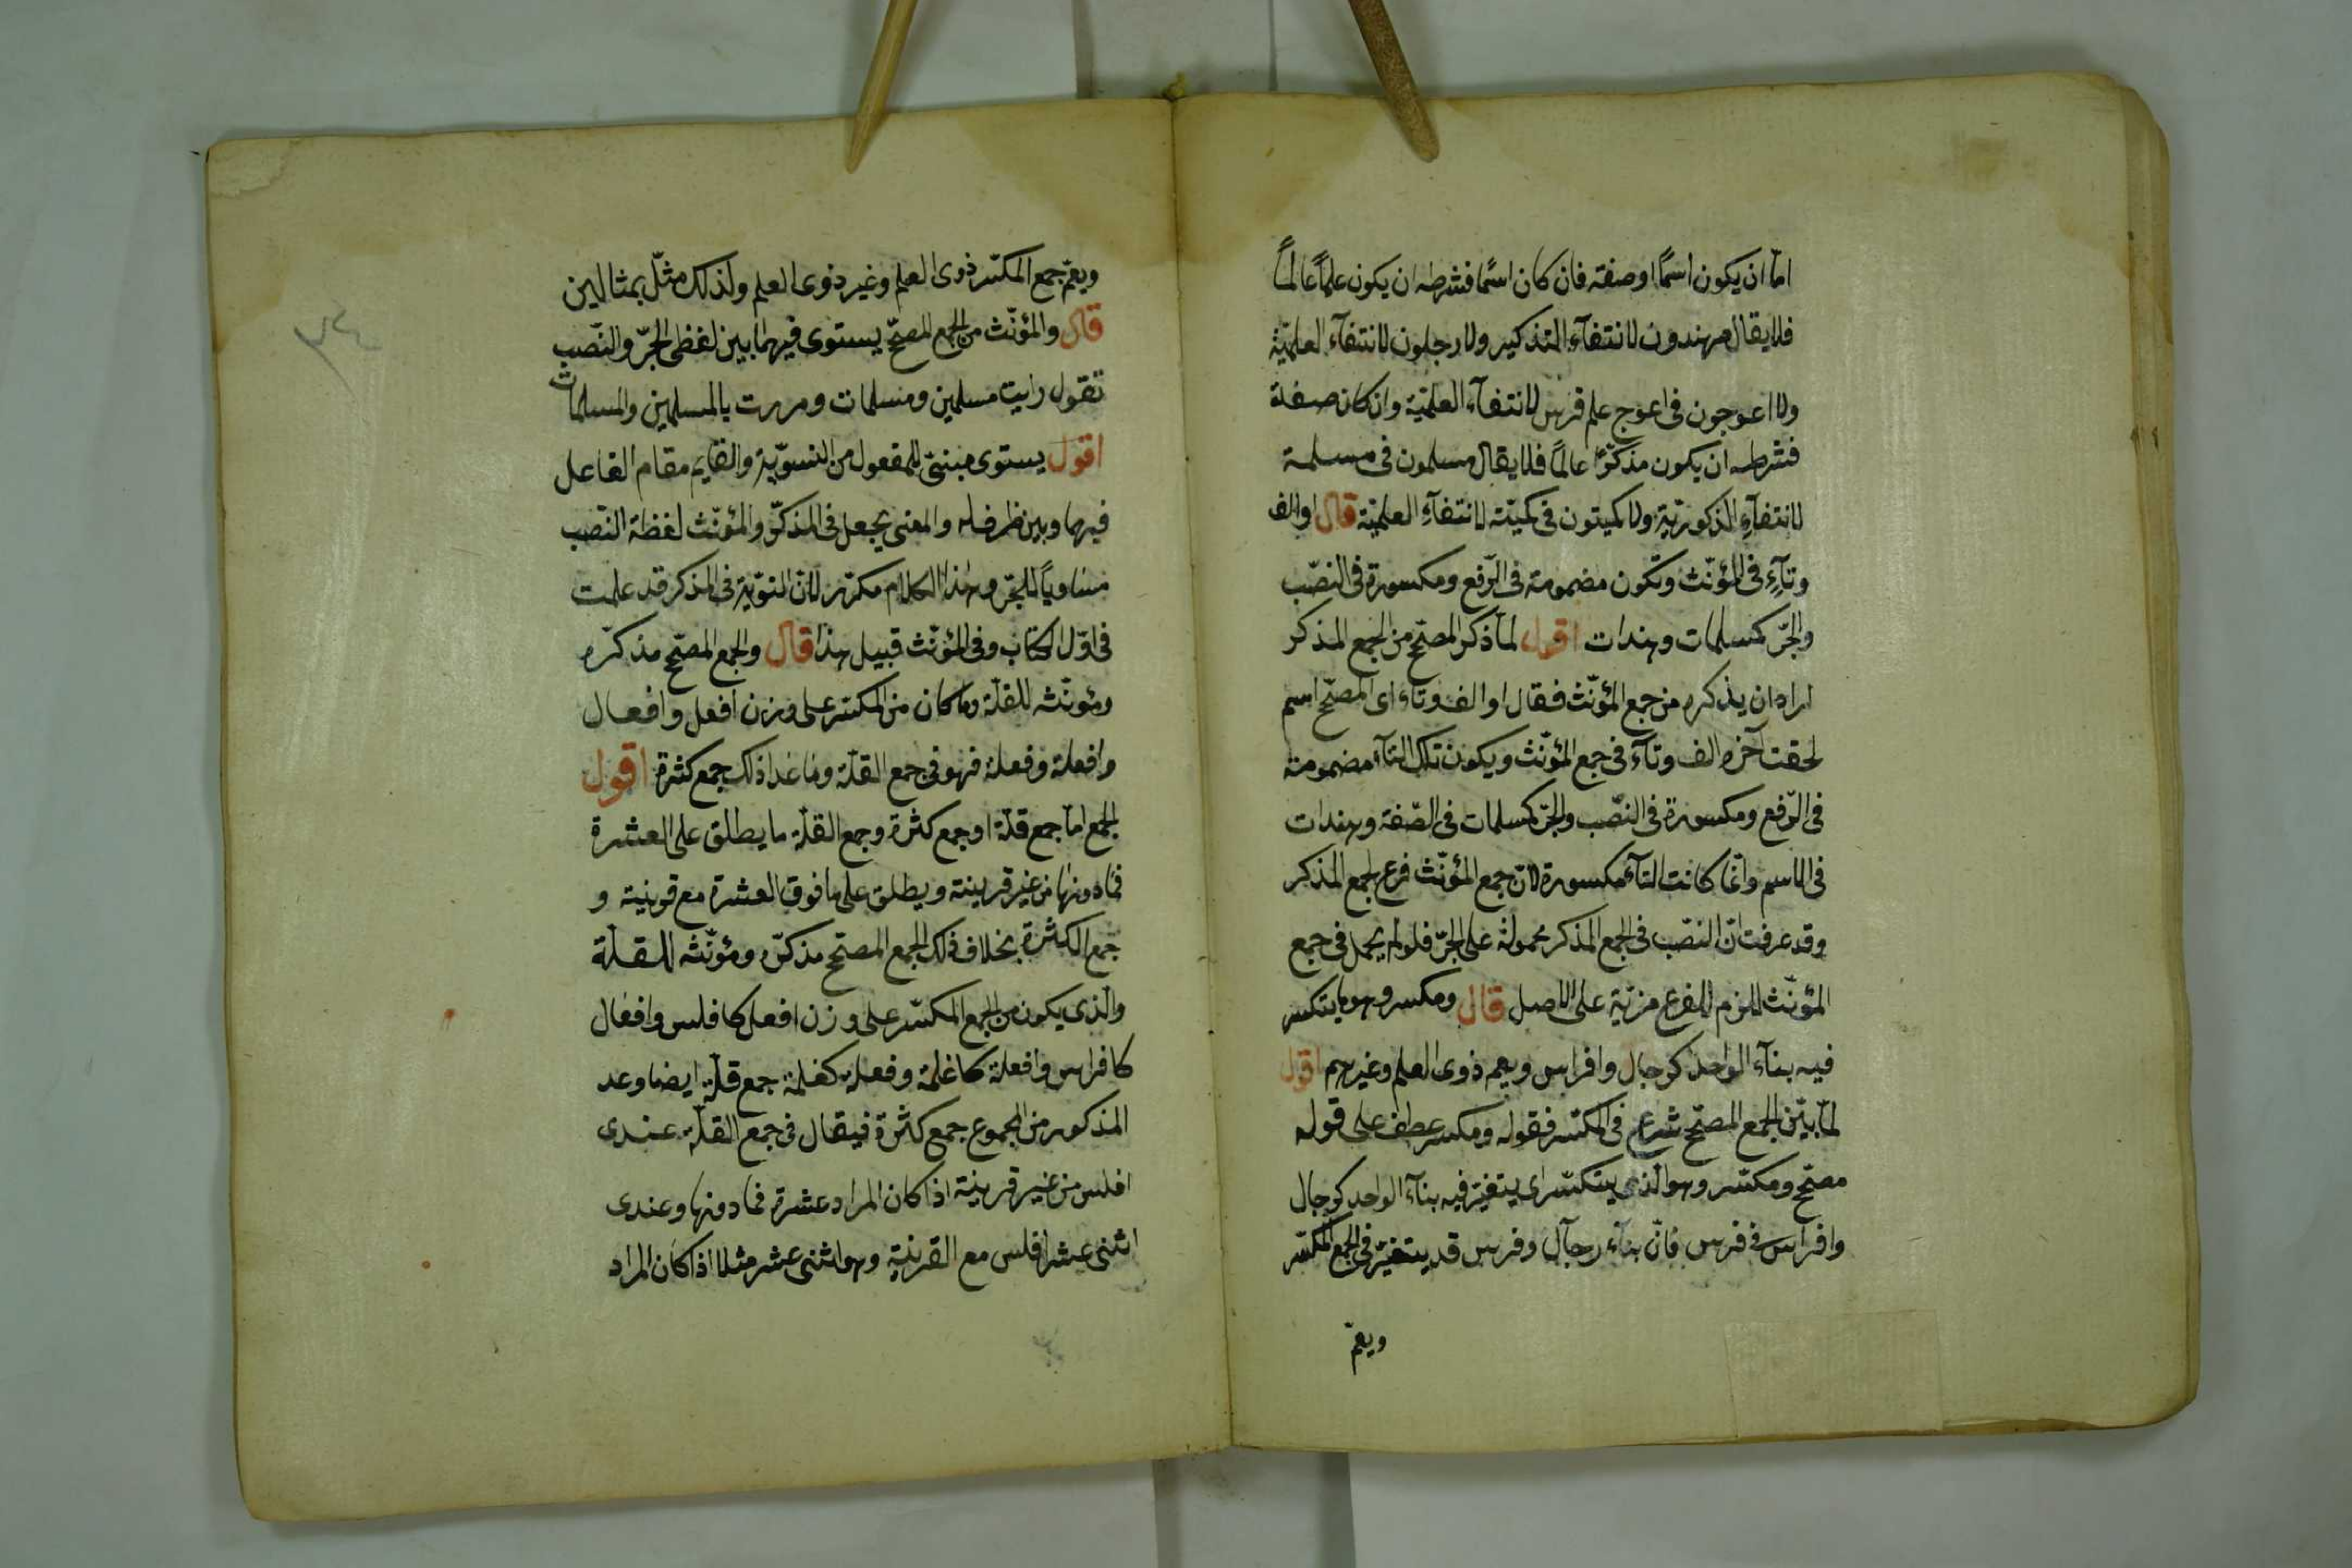 امّا ان يكون اسمًا او صفة فان كان اسمًا فشرطه ان يكون علمًا عالمًا
فلا يقال هندون لانتفآء التذكير ولا رجلون لانتفآء العلميّة
ولا اعوجون فى اعوج علم فرس لانتفآء العلميّة وان كان صفة
فشرطه ان يكون مذكرًا عالمًا فلا يقال مسلمون فى مسلمة
لانتفآء الذكوريّة ولا كميتون فى كميته لانتفآءِ العلميّة قال او الف
وتآءٍ فى المؤنّث وتكون مضمومة فى الرّفع ومكسورة فى النصّب
والجّر كمسلمات وهندات اقول لمّا ذكر المصحّح من الجمع المذكر
اراد ان يذكره من جمع المؤنّث فقال او الف وتآء اى المصحّح اسم
لحقت آخره الف وتآء فى جمع المؤنّث ويكون تلك التآء مضمومة
فى الرّفع ومكسورة فى النصّب والجرّ كمسلمات فى الصّفة وهندات
فى الاسم وانّما كانت التآء مكسورة لانّ جمع المؤنّث فرع لجمع المذكر
وقد عرفت انّ النصّب فى الجمع المذكر محمولة على الجرّ فلو لم يحمل فى جمع
المؤنّث للزم للفرع مزيّة على الاصل قال ومكسر وهو ما يتكسر
فيه بنآء الواحد كرجال وافراس ويعم ذوى العلم وغيرهم اقول
لمّا بيّن الجمع المصحّح شرع فى المكسّر فقوله ومكسر عطف على قوله
مصحّح ومكسّر وهو الّذى يتكسّر اى يتغيّر فيه بنآء الواحد كرجال
وافراس فى فرس فانّ بنآء رجآل وفرس قد يتغيّر فى الجمع المكسّر
ويعمّ
ويعمّ جمع المكسّر ذوى العلم وغير ذوى العلم ولذلك مثّل بمثالين
قال والمؤنّث من الجمع المصحّح يستوى فيهما بين لفظى الجرّ والنّصب
تقول رايت مسلمين ومسلمات ومررت بالمسلمين والمسلمات
اقول يستوى مبنىّ للمفعول من التسوّية والقايم مقام الفاعل
فيهما وبين ظرف له والمعنى يجعل فى المذكّر والمؤنّث لفظة النّصب
مساويًا للجّر وهذا الكلام مكرّر لانّ التوّية فى المذكر قد علمت
فى اوّل الكتاب وفى المؤنّث قبيل هذا قال والجمع المصحّح مذكّره
ومؤنّثه للقلّة وما كان من المكسّر على وزن افعل وافعال
وافعلة وفعلة فهو فى جمع القلّة وما عدا ذلك جمع كثرة اقول
الجمع امّا جمع قلّة او جمع كثرة وجمع القلّة ما يطلق على العشرة
فما دونها من غير قرينة ويطلق على ما فوق العشرة مع قرينة و
جمع الكثرة بخلاف ذلك الجمع المصحّح مذكّره ومؤنّثه للقلّة
والّذى يكون من الجمع المكسّر على وزن افعل كافلس وافعال
كافراس وافعلة كاغلمة وفعلة كغلمة جمع قلّة ايضا وعد
المذكور من الجموع جمع كثرة فيقال فى جمع القلّة عندى
افلس من غير قرينة اذا كان المراد عشرة فما دونها وعندى
اثنى عشر افلس مع القرينة وهو اثنى عشر مثلا اذا كان المراد